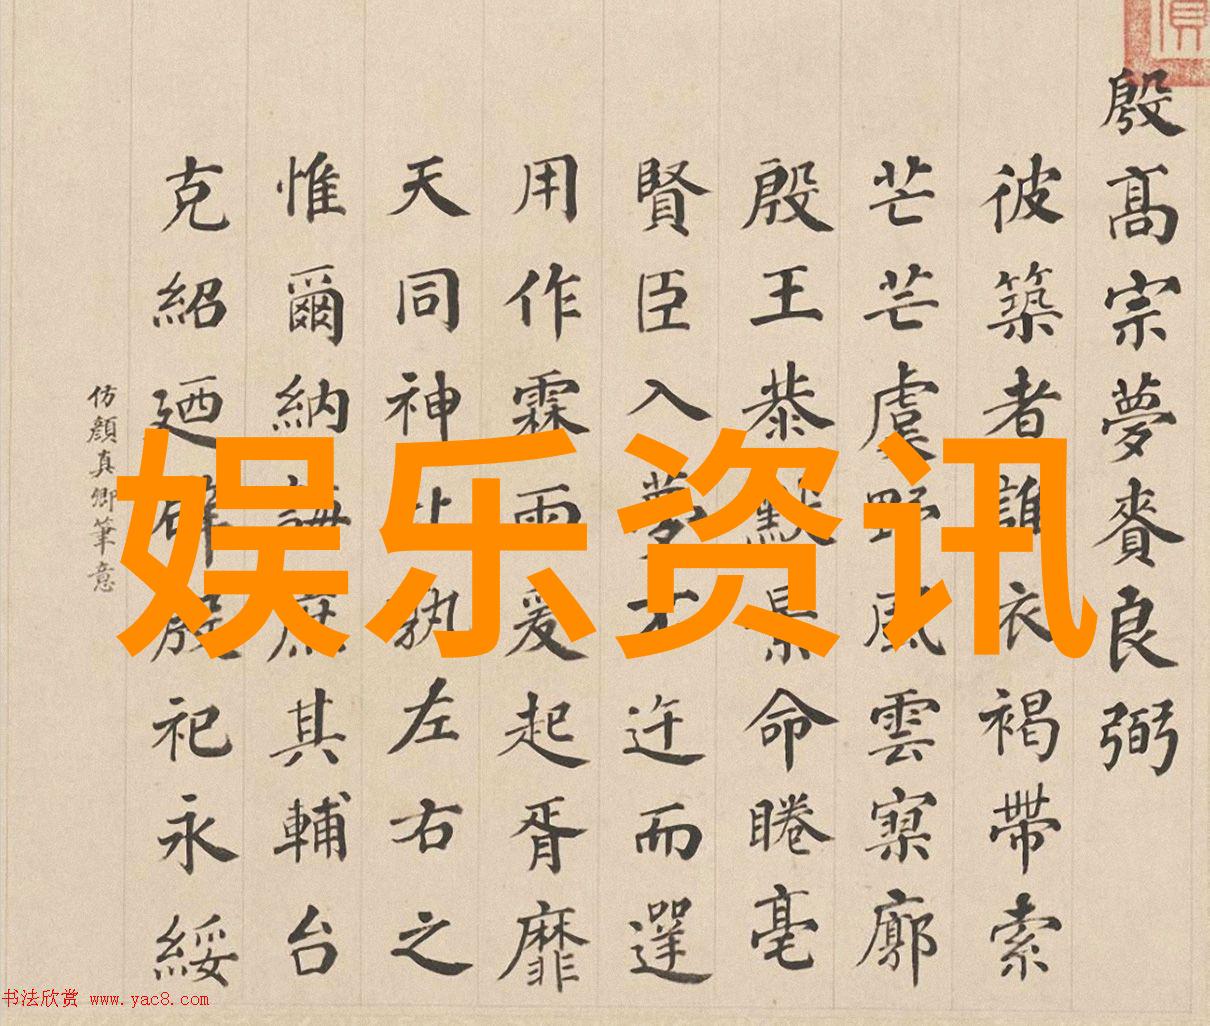 殷高宗夢賚良弼
彼築者誰衣褐帶索
芒芒虞野風雲寥廓
殷王恭默景命睠亳
賢臣入夢不迕而遻
用作霖雨爰起胥靡
天同神 孰左右之
惟爾納誨庶其輔台
克紹廼辟殷祀永綏
仿顏真卿筆意
娱乐资讯
书法欣赏 www.yac8.com